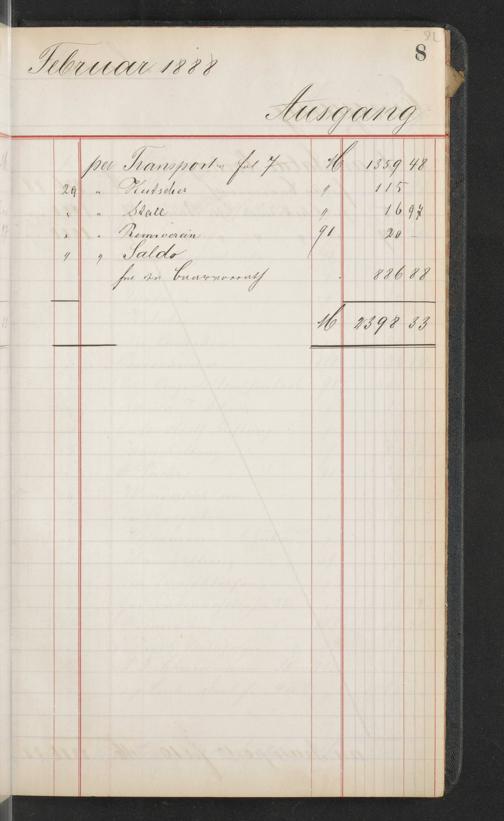 8
Februar 1888
Ausgang
per Transport v. fol 7 M 1359 48
29 " Kutscher " 115
" " Stall " 16 97
" " Rennverein 91 20 -
" " Saldo
Baarvorrath 886 88
M 2398 33